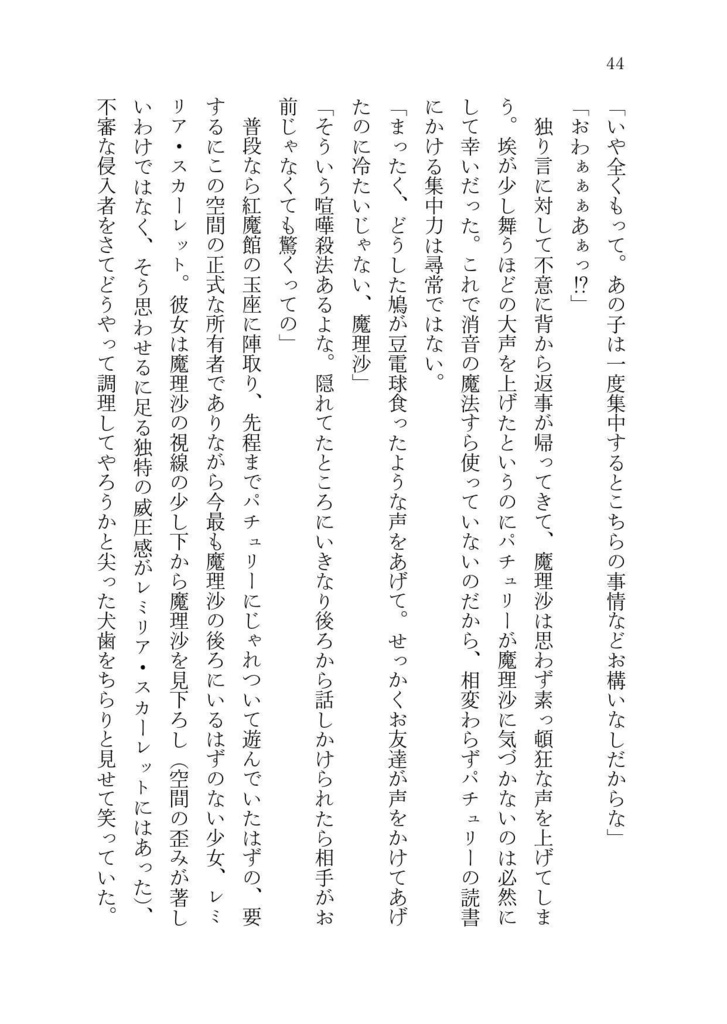 44
「いや全くもって。あの子は一度集中するとこちらの事情などお構いなしだからな」
「おわぁぁぁあぁっ!?」
　独り言に対して不意に背から返事が帰ってきて、魔理沙は思わず素っ頓狂な声を上げてしま
う。埃が少し舞うほどの大声を上げたというのにパチュリーが魔理沙に気づかないのは必然に
して幸いだった。これで消音の魔法すら使っていないのだから、相変わらずパチュリーの読書
にかける集中力は尋常ではない。
「まったく、どうした鳩が豆電球食ったような声をあげて。せっかくお友達が声をかけてあげ
たのに冷たいじゃない、魔理沙」
「そういう喧嘩殺法あるよな。隠れてたところにいきなり後ろから話しかけられたら相手がお
前じゃなくても驚くっての」
　普段なら紅魔館の玉座に陣取り、先程までパチュリーにじゃれついて遊んでいたはずの、要
するにこの空間の正式な所有者でありながら今最も魔理沙の後ろにいるはずのない少女、レミ
リア・スカーレット。彼女は魔理沙の視線の少し下から魔理沙を見下ろし（空間の歪みが著し
いわけではなく、そう思わせるに足る独特の威圧感がレミリア・スカーレットにはあった）、
不審な侵入者をさてどうやって調理してやろうかと尖った犬歯をちらりと見せて笑っていた。